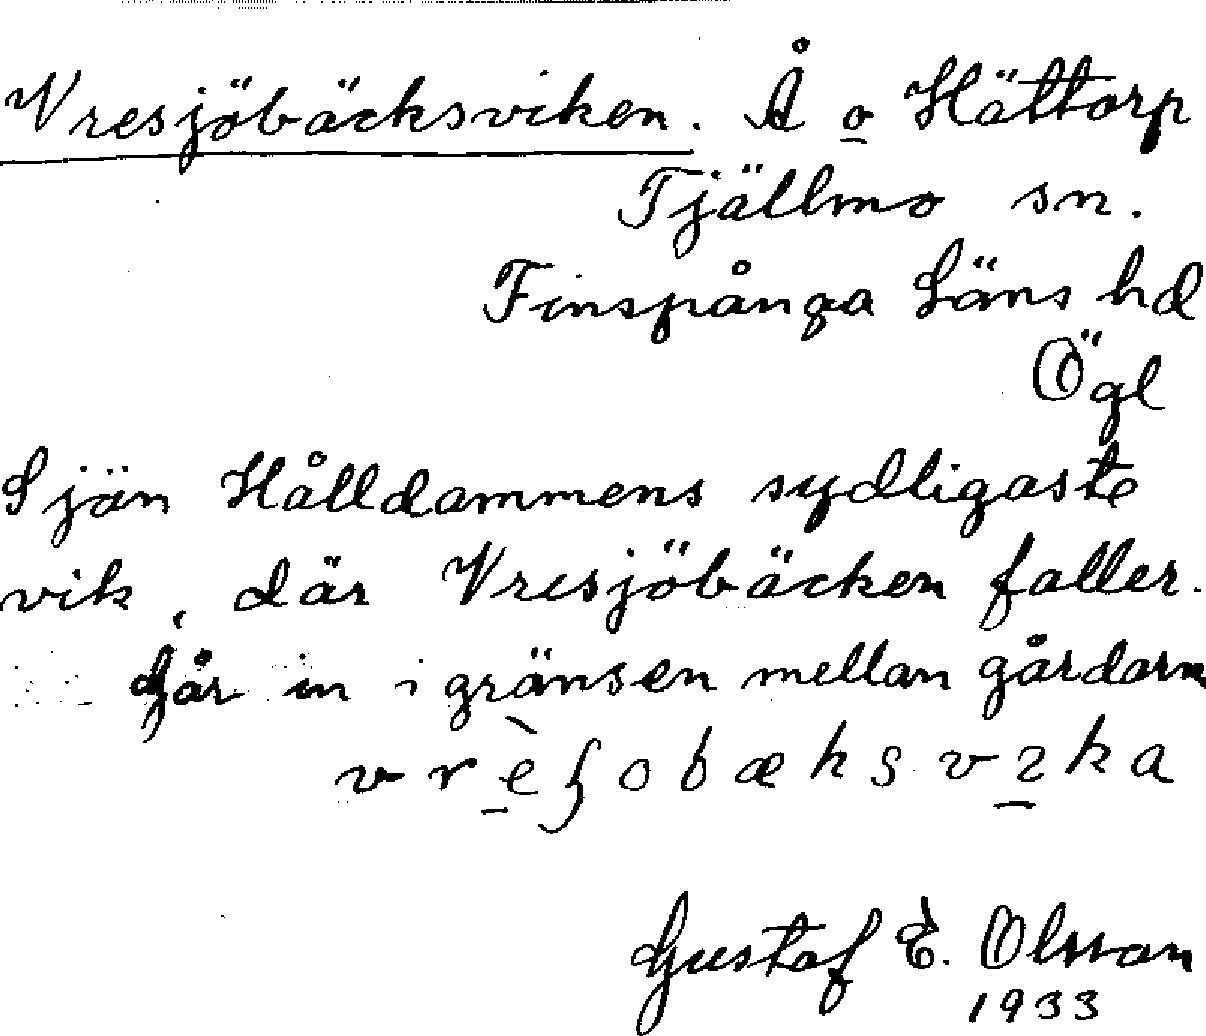 Vresjöbäcksviken. Å o Hättorp
Tjällmo sn.
Finspånga Läns hd
Ögl
Sjön Hålldammens sydligaste
vik, där Vresjöbäcken faller.
Går in i gränsen mellan gårdarn
vrèʃobæksvika
Gustaf E. Olsson
1933